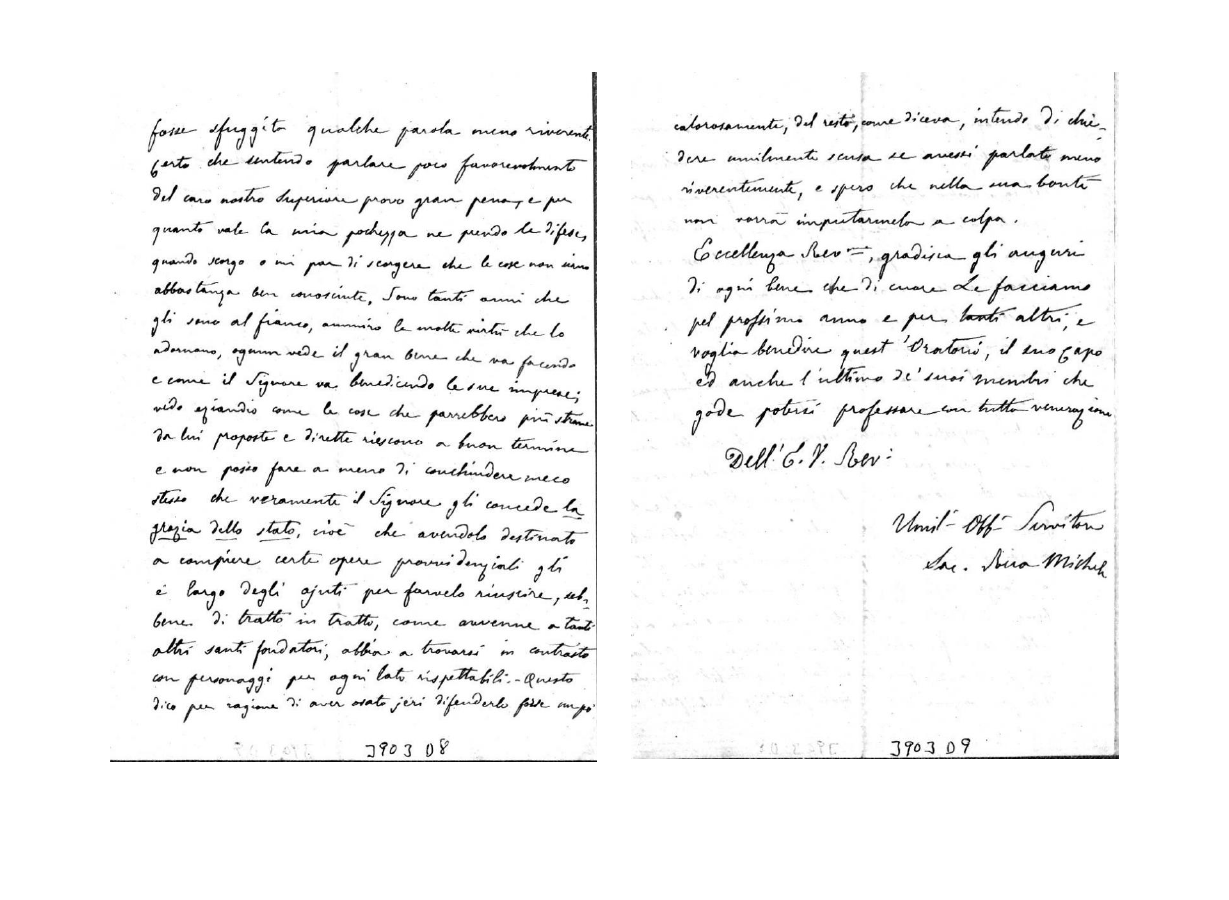 fosse sfuggita qualche parola meno riverente.
Certo che sentendo parlare poco favorevolmente
del caro nostro Superiore provo gran pena, e per
quanto vale la mia pochezza ne prendo le difese,
quando scorgo o mi par di scorgere che le cose non sieno
abbastanza ben conosciute. Sono tanti anni che
gli sono al fianco, ammiro le molte virtù che lo
adornano, ognun vede il gran bene che va facendo
e come il Signore va benedicendo le sue imprese;
vedo eziandio come le cose che parrebbero più strane
da lui proposte e dirette riescono a buon termine
e non posso fare a meno di conchiudere meco
stesso che veramente il Signore gli concede la
grazia dello stato, cioè che avendolo destinato
a compiere certe opere provvidenziali gli
è largo degli ajuti per farvelo riuscire, seb-
bene di tratto in tratto, come avvenne a tanti
altri santi fondatori, abbia a trovarsi in contrasto
con personaggi per ogni lato rispettabili. - Questo
dico per ragione di aver osato jeri difenderlo forse un po'
3903 D8
calorosamente, del resto, come diceva, intendo di chie-
dere umilmente scusa se avessi parlato meno
riverentemente, e spero che nella sua bontà
non vorrà imputarmela a colpa.
Eccellenza Rev=, gradisca gli auguri
di ogni bene che di cuore Le facciamo
pel prossimo anno e per tanti altri, e
voglia benedire quest'Oratorio, il suo Capo
ed anche l'ultimo de' suoi membri che
gode potersi professare con tutta venerazione
Dell'E. V. Rev:
Umil- Obb- Servitore
Sac. Rua Michele
3903 D9